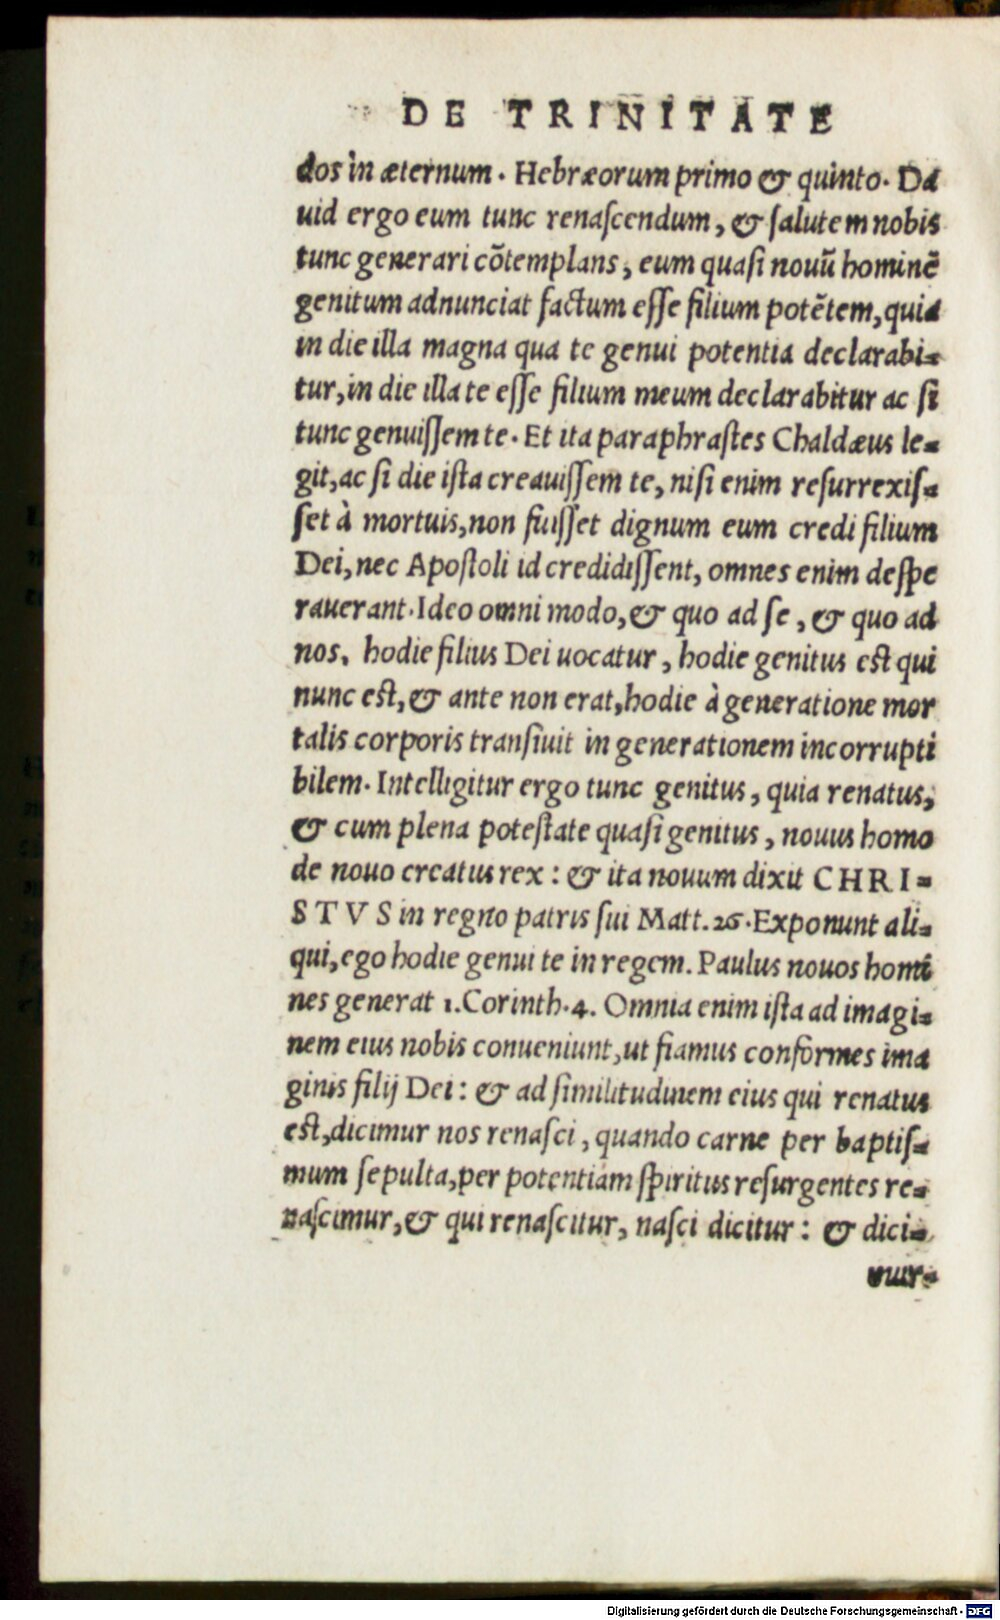 DE TRINITATE
dos in æternum. Hebræorum primo & quinto. Da
uid ergo eum tunc renaſcendum, & ſalutem nobis
tunc generari cõtemplans, eum quaſi nouũ hominẽ
genitum adnunciat factum eſſe filium potẽtem, quia
in die illa magna qua te genui potentia declarabi-
tur, in die illa te eſſe filium meum declarabitur ac ſi
tunc genuiſſem te. Et ita paraphraſtes Chaldæus le-
git, ac ſi die iſta creauiſſem te, niſi enim reſurrexiſ-
ſet à mortuis, non fuiſſet dignum eum credi filium
Dei, nec Apoſtoli id credidiſſent, omnes enim deſpe
rauerant. Ideo omni modo, & quo ad ſe, & quo ad
nos, hodie filius Dei uocatur, hodie genitus eſt qui
nunc eſt, & ante non erat, hodie à generatione mor
talis corporis tranſiuit in generationem incorrupti
bilem. Intelligitur ergo tunc genitus, quia renatus,
& cum plena poteſtate quaſi genitus, nouus homo
de nouo creatus rex: & ita nouum dixit CHRI-
STVS in regno patris ſui Matt. 26. Exponunt ali-
qui, ego hodie genui te in regem. Paulus nouos homi
nes generat 1. Corinth. 4. Omnia enim iſta ad imagi-
nem eius nobis conueniunt, ut fiamus conformes ima
ginis filij Dei: & ad ſimilitudinem eius qui renatus
eſt, dicimur nos renaſci, quando carne per baptiſ-
mum ſepulta, per potentiam ſpiritus reſurgentes re-
naſcimur, & qui renaſcitur, naſci dicitur: & dici-
mur-
Digitalisierung gefördert durch die Deutsche Forschungsgemeinschaft - DFG